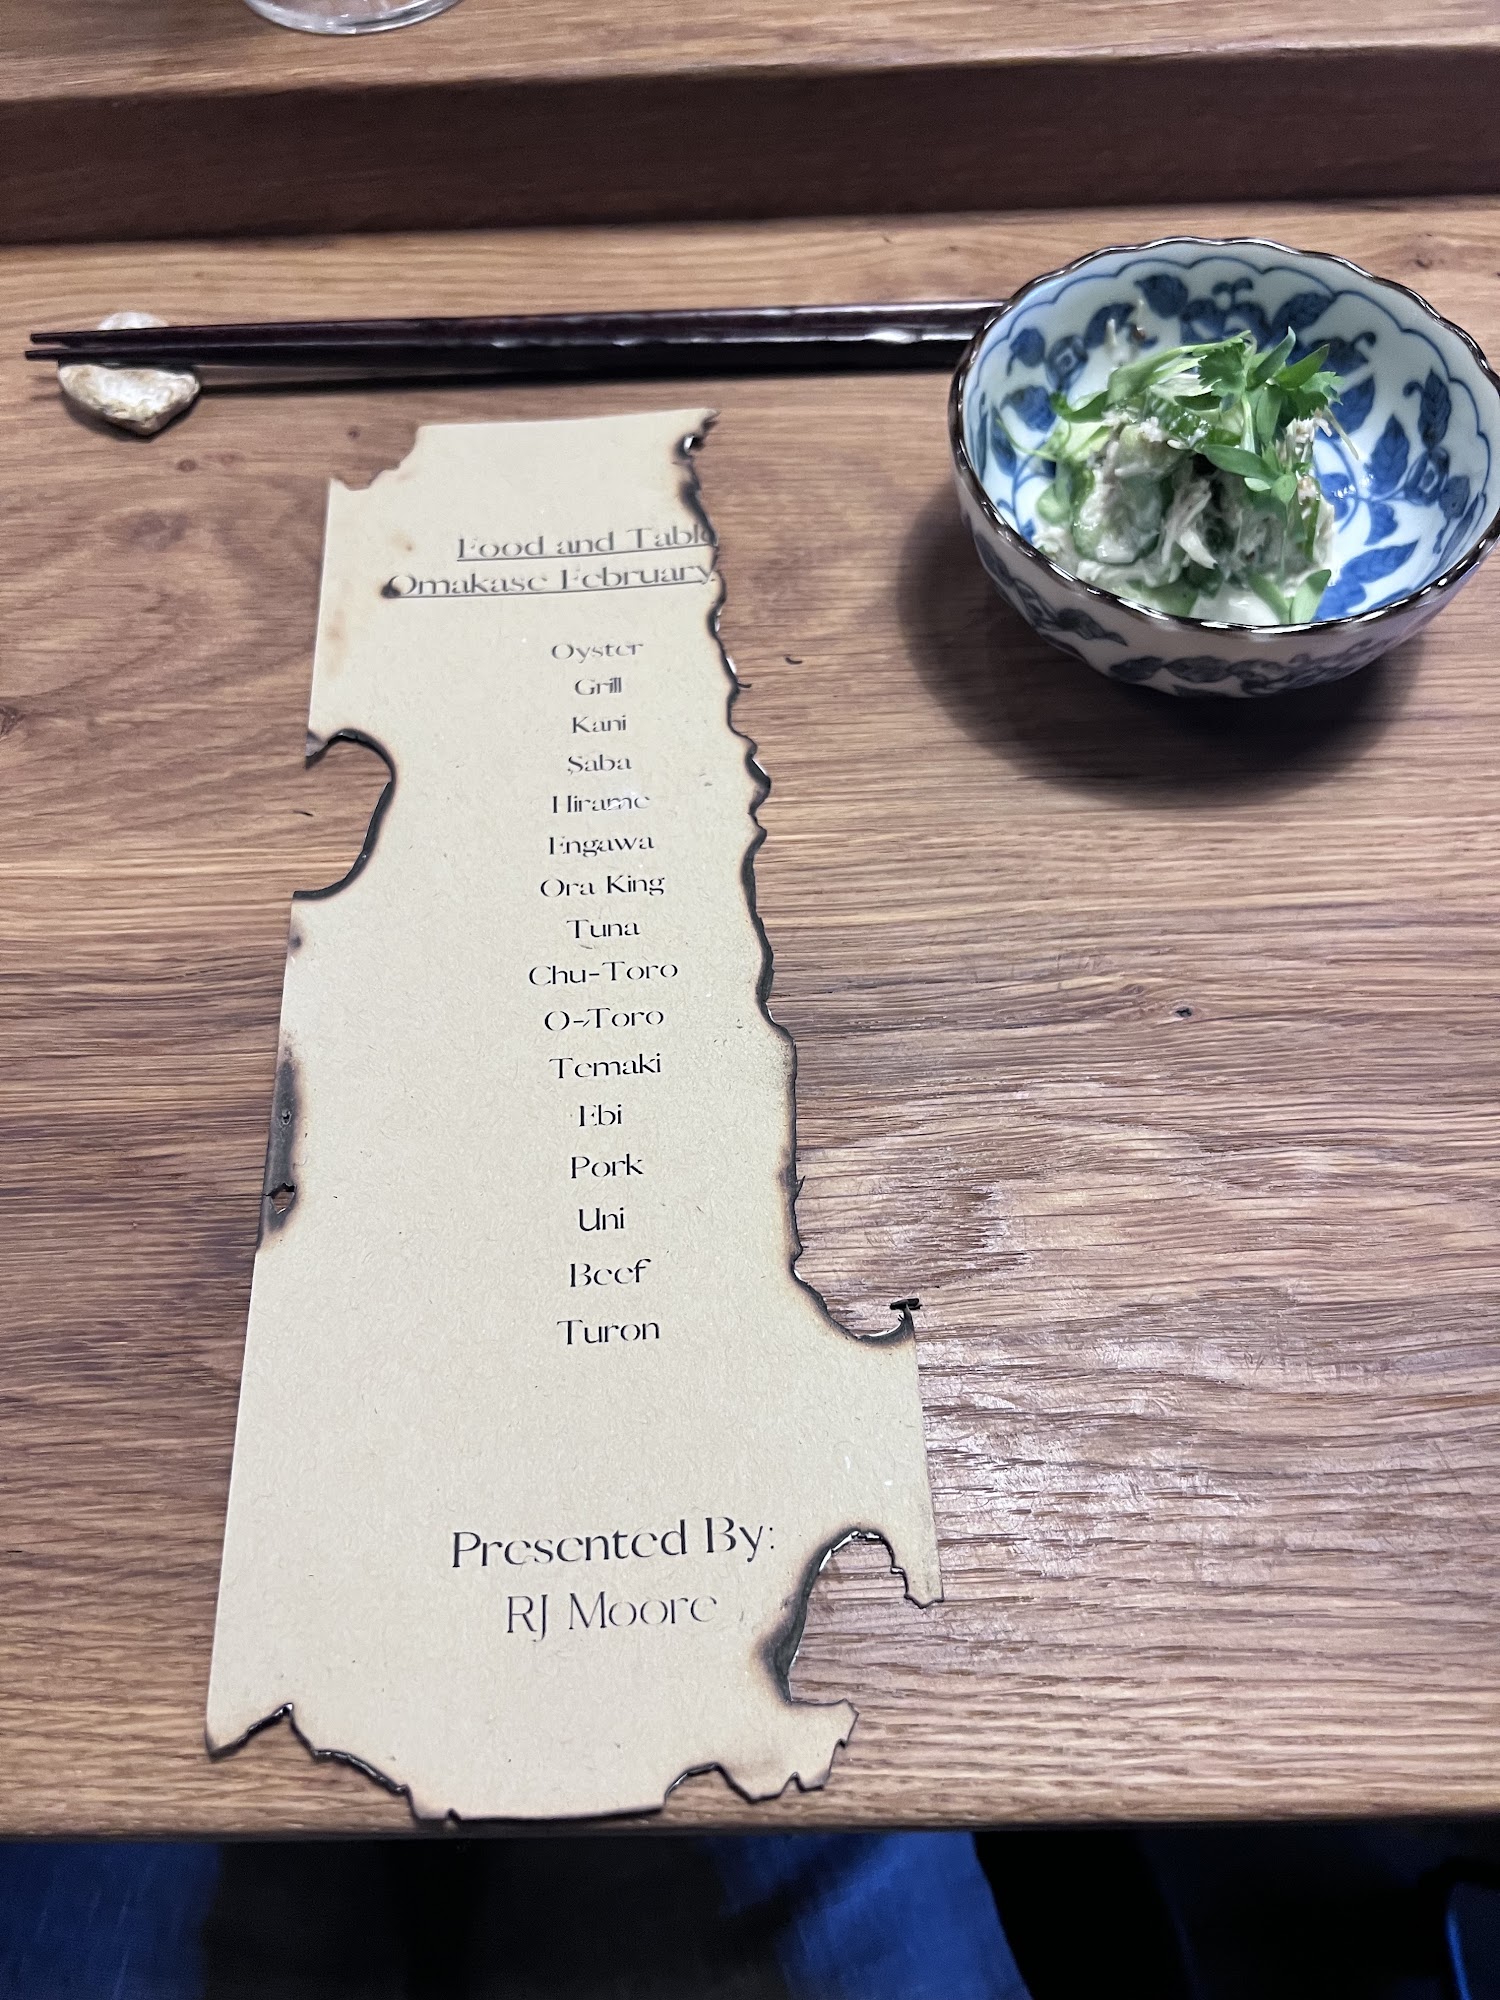 Food and Table
Omakase February
Oyster
Grill
Kani
Saba
Hirame
Engawa
Ora King
Tuna
Chu-Toro
O-Toro
Temaki
Ebi
Pork
Uni
Beef
Turon
Presented By:
RJ Moore